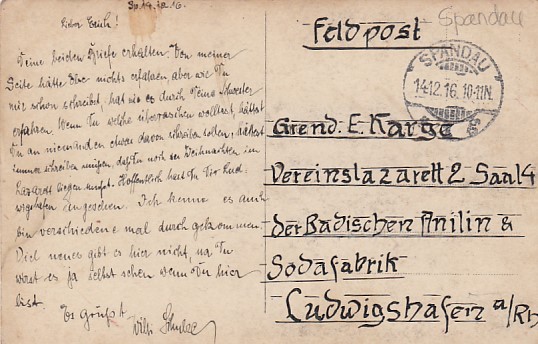 Sp. 14.12.16.
Lieber Erich!
Deine beiden Briefe erhalten. Von meiner
Seite hätte Ebe nichts erfahren aber wie Du
mir schon schreibst, hat sie es durch Deine Schwester
erfahren. Wenn Du welche überraschen wolltest, hättest
Du an niemanden etwas davon schreiben sollen, hättest
immer schreiben müssen, daß Du noch zu Weihnachten im
Lazarett liegen mußt. Hoffentlich hast Du Dir Lud-
wigshafen angesehen. Ich kenne es auch
bin verschiedene mal durchgekommen.
Viel neues gibt es hier nicht, na Du
wirst es ja selbst sehen wenn Du hier
bist.
Es Grüßt
Willi
Feldpost
Spandau
SPANDAU
14.12.16. 10-11N.
Grend. E. Karge
Vereinslazarett 2 Saal 4
der Badischen Anilin &
Sodafabrik
Ludwigshafen a/Rh